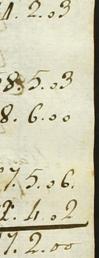 4.2.03
28.5.03
8.6.00
27.5.06.
2.4.02
17.2.00